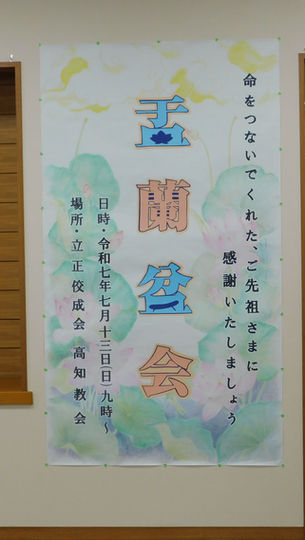 命をつないでくれた、ご先祖さまに
感謝いたしましょう
盂蘭盆会
日時・令和七年七月十三日(日)九時～
場所・立正佼成会 高知教会